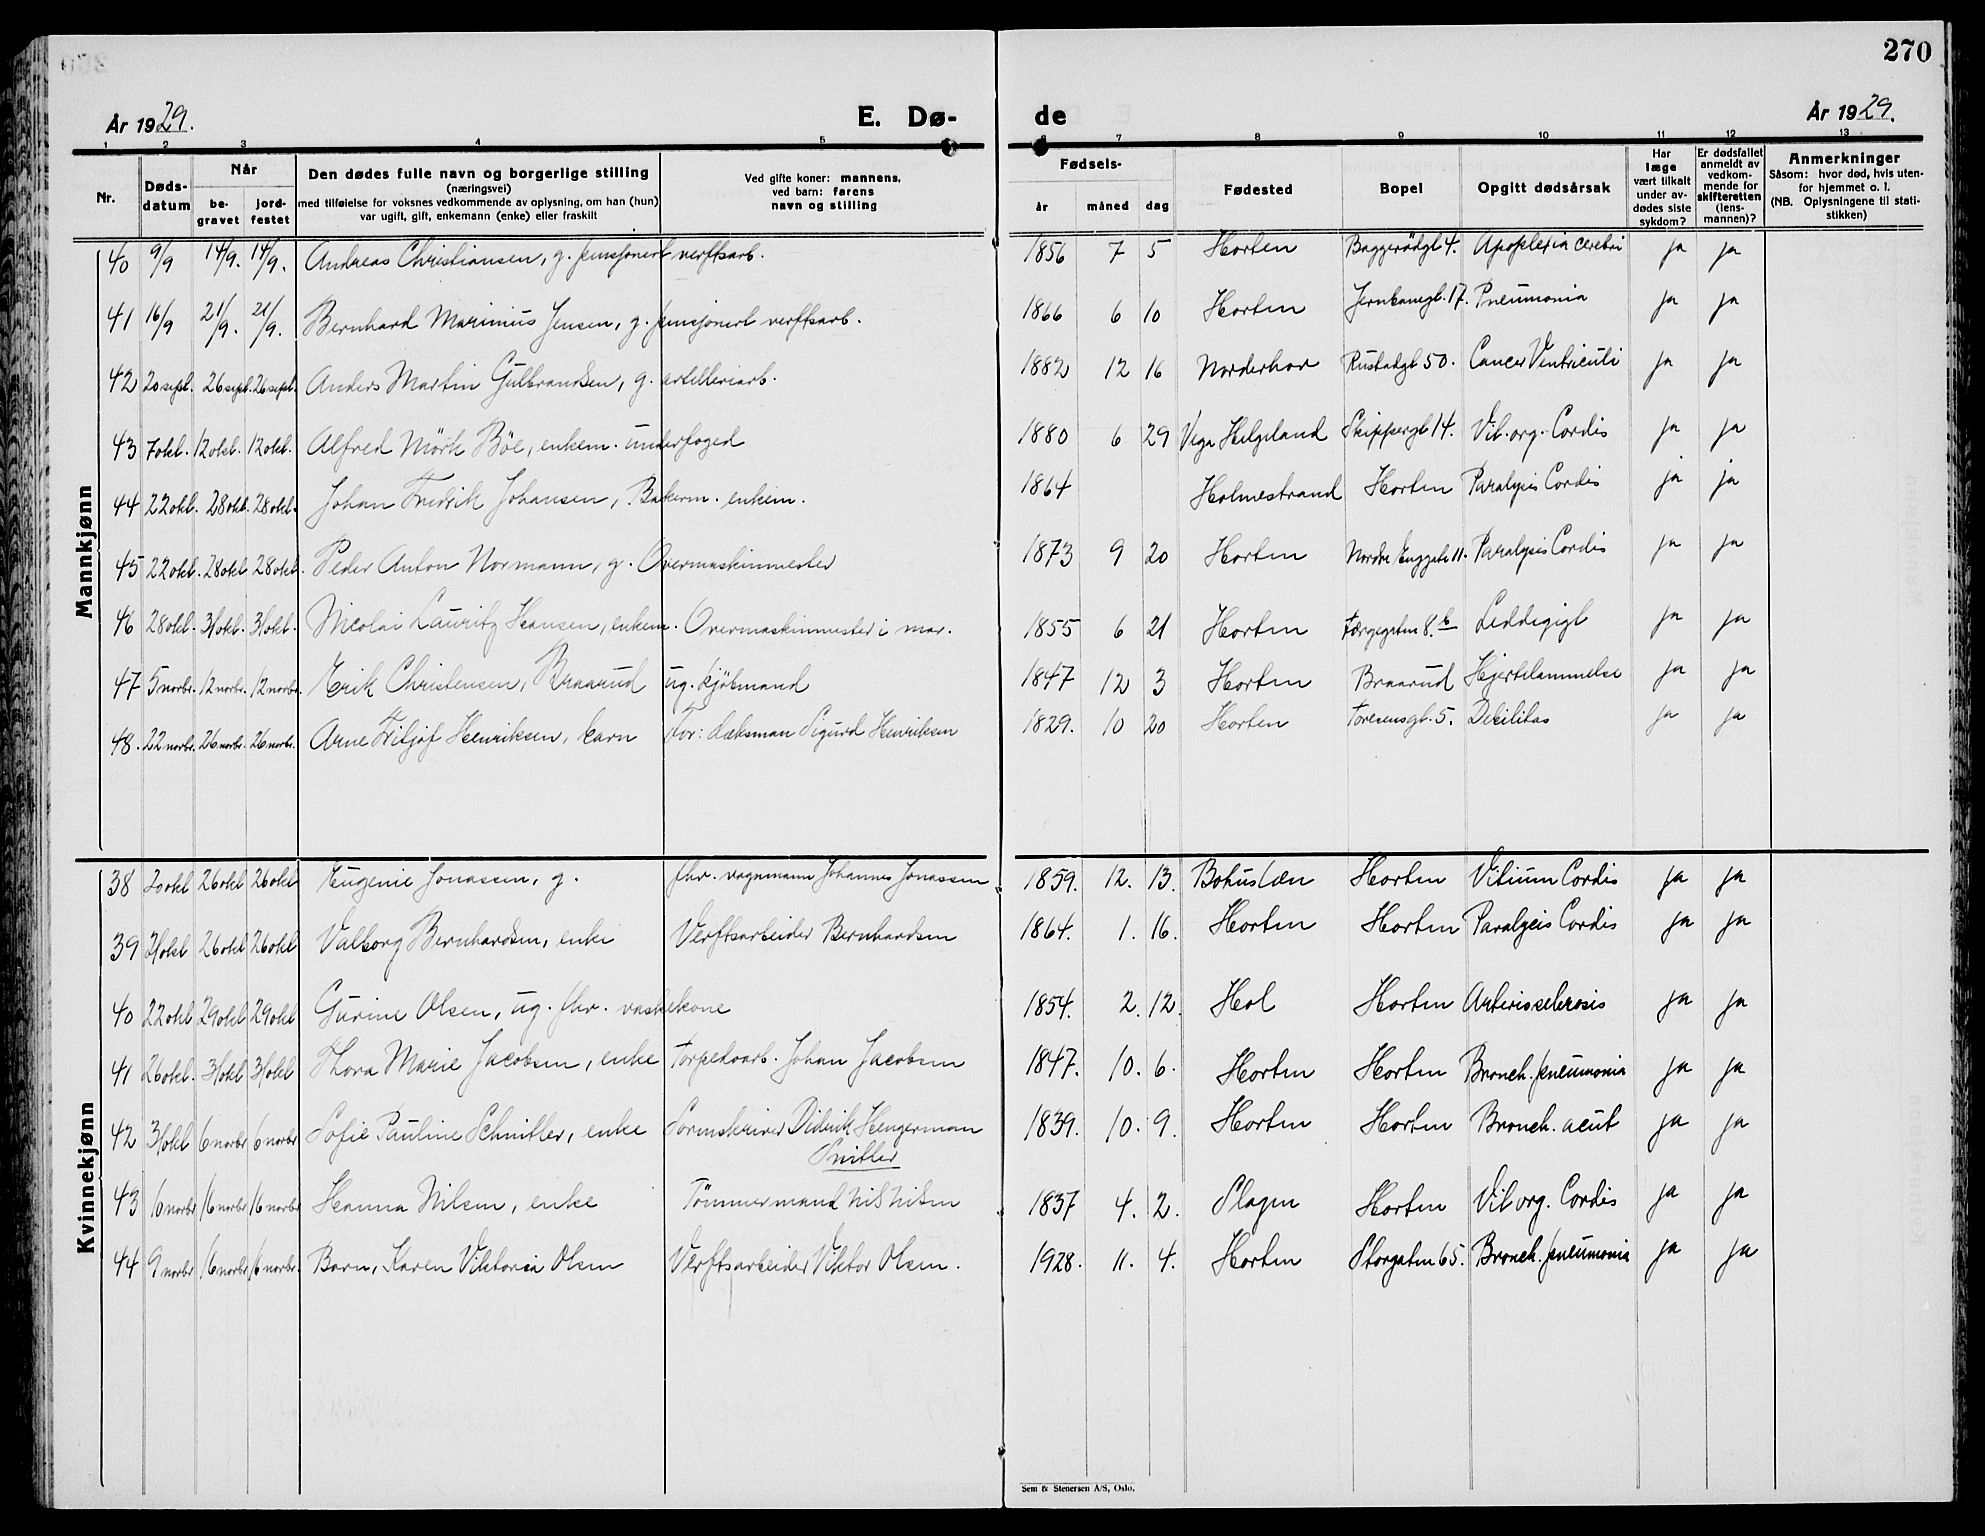 270
År 1929. E. Dø- de År 1929.
1 2 3 4 5 6 7 8 9 10 11 12 13
Nr. Døds-datum Når be-gravet jord-festet Den dødes fulle navn og borgerlige stilling (næringsvei) med tilføielse for voksnes vedkommende av oplysning, om han (hun) var ugift, gift, enkemann (enke) eller fraskilt Ved gifte koner: mannens, ved barn: farens navn og stilling Fødsels- år måned dag Fødested Bopel Opgitt dødsårsak Har læge vært tilkalt under av-dødes siste sykdom? Er dødsfallet anmeldt av vedkom-mende for skifteretten (lens-mannen)? Anmerkninger Såsom: hvor død, hvis uten-for hjemmet o. l. (NB. Oplysningene til stati-stikken)
Mannkjønn
40 9/9 14/9. 14/9. Andreas Christiansen, g. pensjonert verftsarb. 1856 7 5 Horten Baggerødgt 4. Apoplexia cerebri ja ja
41 16/9 21/9. 21/9. Bernhard Marinius Jensen, g. pensjonert verftsarb. 1866 6 10 Horten Jernbanegt. 17. Pneumonia ja ja
42 20 sept. 26 sept. 26 sept. Anders Martin Gulbrandsen, g. artilleriarb. 1882 12 16 Norderhov Rustadgt 50. Cancer Ventriculi ja ja
43 7 okt. 12 okt. 12 okt. Alfred Mörk Böe, enkem. underfoged 1880 6 29 Vega Helgeland Skippergt 14. Vit. org. Cordis ja ja
44 22 okt. 28 okt. 28 okt. Johan Fredrik Johansen, Bakerm. enkem. 1864 Holmestrand Horten Paralysis Cordis ja ja
45 22 okt. 28 okt 28 okt. Peder Anton Normann, g. Overmaskinmester 1873 9 20 Horten Nordre Enggate 11. Paralysis Cordis ja ja
46 28 okt. 31 okt. 31 okt. Nicolai Lauritz Hansen, enkem. Overmaskinmester i mar. 1855 6 21 Horten Færgegaten 8.b Leddegigt ja ja
47 5 novbr. 12 novbr. 12 novbr. Erik Christensen, Braarud ug. kjöbmand 1847 12 3 Horten Braarud Hjertelammelse ja ja
48. 22 novbr. 26 novbr. 26 novbr. Arne Fritjof Henriksen, barn Far: Læksman Sigurd Henriksen 1829. 10 20 Horten Toresensgt. 5. Debilitas ja ja
Kvinnekjønn
38 20 okt 26 okt 26 okt Eugenie Jonassen, g. fhv. vognmann Johannes Jonassen 1859. 12. 13. Bohuslæn Horten Vitium Cordis ja ja
39 21 okt 26 okt 26 okt Valborg Bernhardsen, enke Verftsarbeider Bernhardsen 1864. 1. 16. Horten Horten Paralysis Cordis ja ja
40 22 okt 29 okt 29 okt Gurine Olsen, ug. fhv. vaskekone 1854. 2. 12. Hol Horten Arteriosclerosis ja ja
41 26 okt. 31 okt 31 okt Thora Marie Jacobsen, enke Torpedoarb. Johan Jacobsen 1847. 10. 6. Horten Horten Bronch. pneumonia ja ja
42 31 okt 6 novbr 6 novbr Sofie Pauline Schnitler, enke Sorenskriver Didrik Hengerman 1839. 10. 9. Horten Horten Bronch. acut ja ja
Snitler
43 10 novbr 16 novbr 16 novbr Hanna Nilsen, enke Tömmermand Nils Nilsen 1837 4. 2. Slagen Horten Vit org. Cordis ja ja
44 9 novbr 16 novbr 16 novbr. Barn, Karen Viktoria Olsen Verftsarbeider Viktor Olsen. 1928. 11. 4. Horten Storgaten 65. Bronch. pneumonia ja ja
Sem & Stenersen A/S, Oslo.